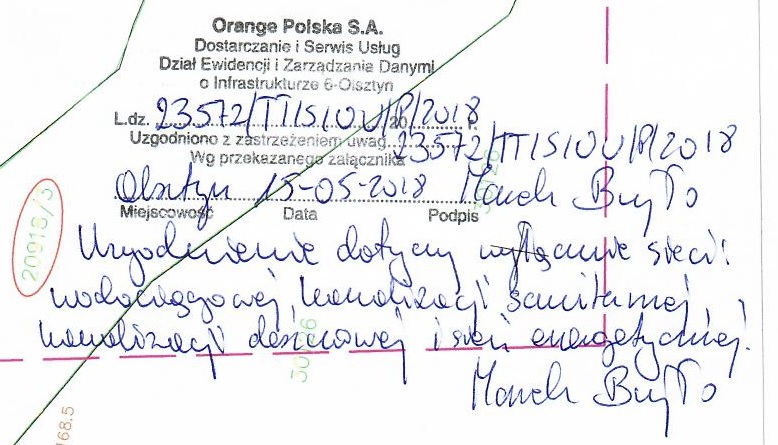 Orange Polska S.A.
Dostarczanie i Serwis Usług
Dział Ewidencji i Zarządzania Danymi
o Infrastrukturze 6-Olsztyn
L.dz. 23572/TTISIOU/P/2018 r.
Uzgodniono z zastrzeżeniem uwag 23572/TTISIOU/P/2018
Wg przekazanego załącznika
Olsztyn 15-05-2018 Marek Bryło
Miejscowość Data Podpis
20918/3
Uzgodnienie dotyczy wyłącznie sieci:
wodociągowej, kanalizacji sanitarnej,
kanalizacji deszczowej i sieci energetycznej.
Marek Bryło
168.5